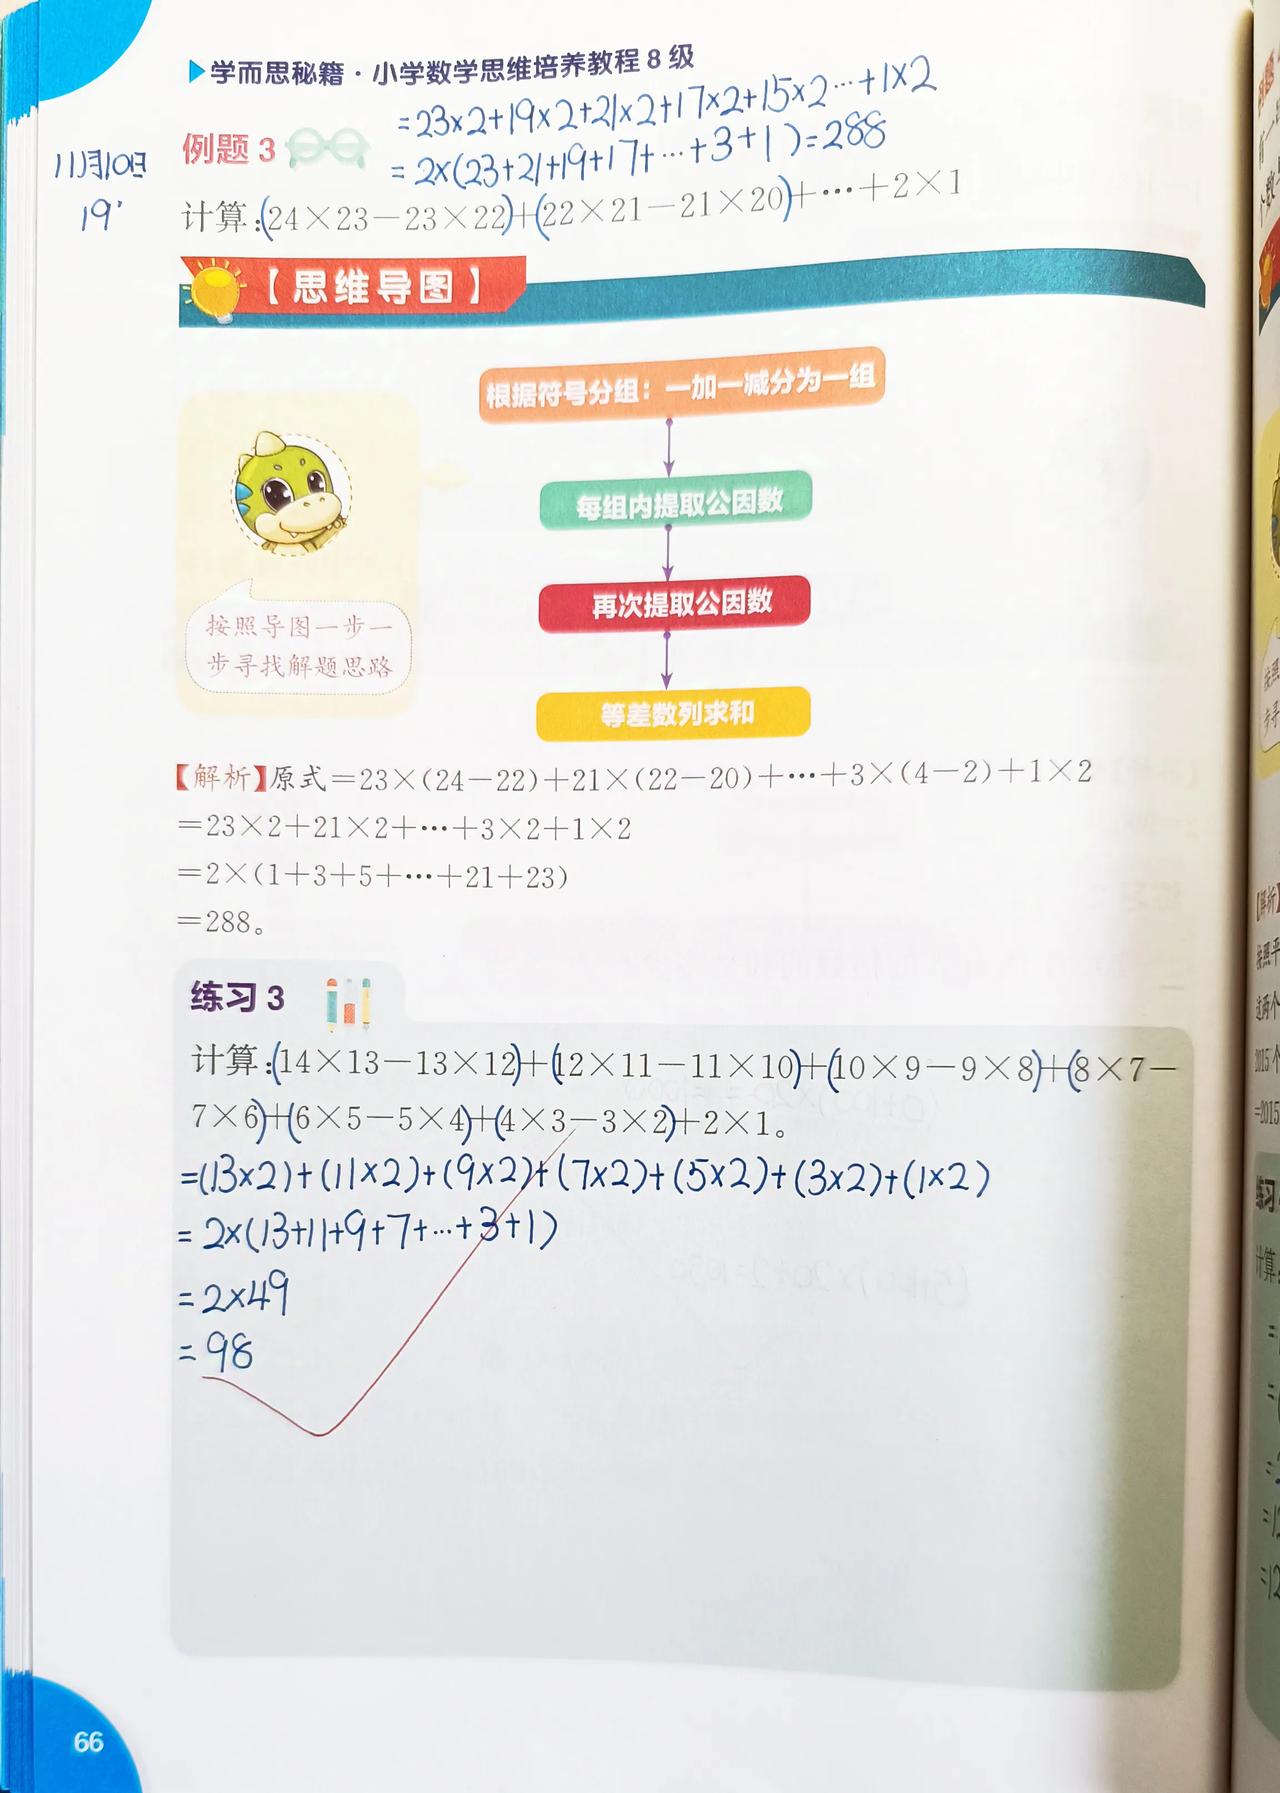 ▶学而思秘籍·小学数学思维培养教程8级
=23×2+19×2+21×2+17×2+15×2…+1×2
例题3
=2×(23+21+19+17+…+3+1)=288
11月10日
19'
计算:(24×23-23×22)+(22×21-21×20)+…+2×1
【思维导图】
根据符号分组：一加一减分为一组
每组内提取公因数
再次提取公因数
等差数列求和
按照导图一步一
步寻找解题思路
【解析】原式=23×(24-22)+21×(22-20)+…+3×(4-2)+1×2
=23×2+21×2+…+3×2+1×2
=2×(1+3+5+…+21+23)
=288。
练习3
计算:(14×13-13×12)+(12×11-11×10)+(10×9-9×8)+(8×7-
7×6)+(6×5-5×4)+(4×3-3×2)+2×1。
=(13×2)+(11×2)+(9×2)+(7×2)+(5×2)+(3×2)+(1×2)
=2×(13+11+9+7+…+3+1)
=2×49
=98
66